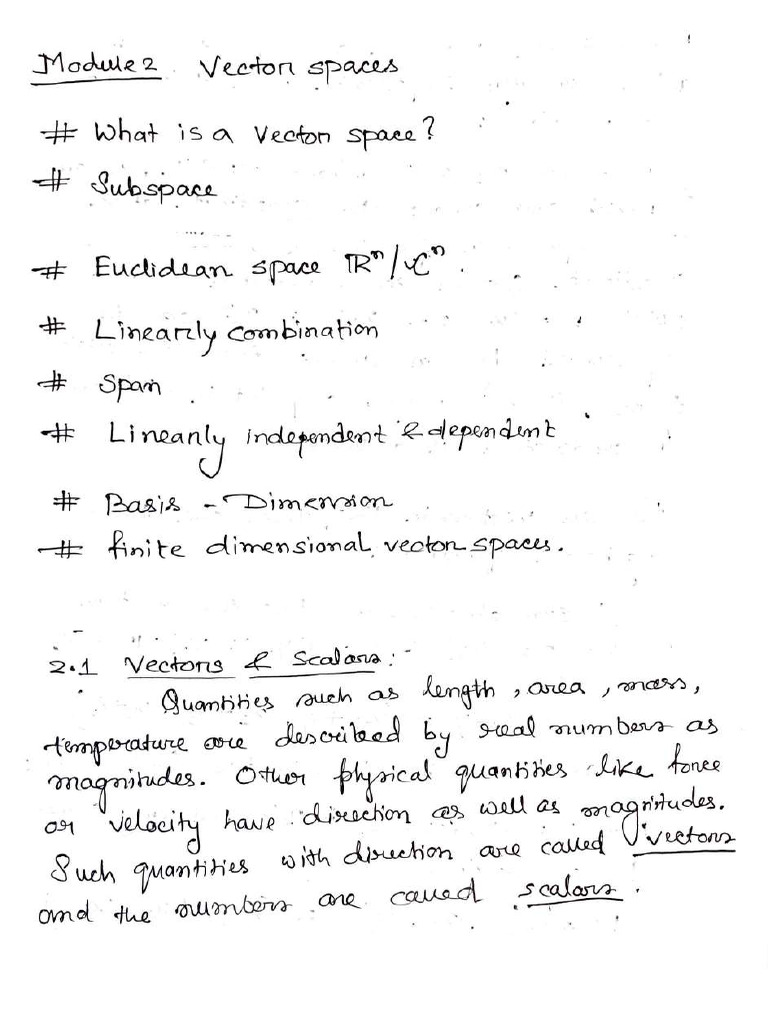 Module 2 Vector spaces
# What is a Vector space?
# Subspace
# Euclidean space ℝⁿ/ℂⁿ.
# Linearly combination
# Span
# Linearly independent & dependent
# Basis - Dimension
# finite dimensional vector spaces.
2.1 Vectors & Scalars:-
Quantities such as length, area, mass,
temperature are described by real numbers as
magnitudes. Other physical quantities like force
or velocity have direction as well as magnitudes.
Such quantities with direction are called vectors
and the numbers are called scalars.